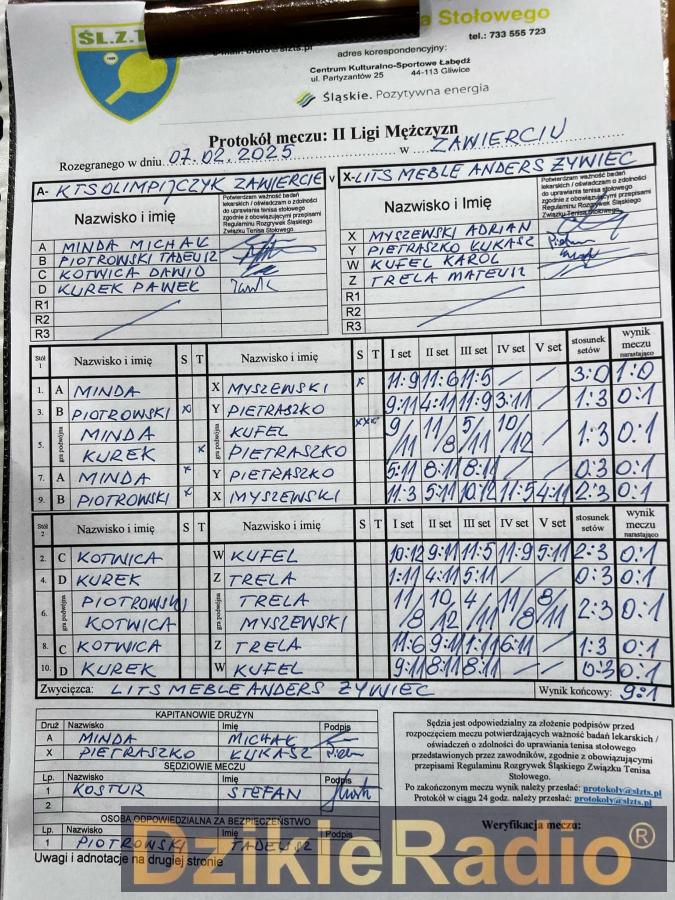 ŚL.Z.T
a Stołowego
tel.: 733 555 723
adres korespondencyjny:
Centrum Kulturalno-Sportowe Łabędź
ul. Partyzantów 25 44-113 Gliwice
Śląskie. Pozytywna energia
Protokół meczu: II Ligi Mężczyzn
Rozegranego w dniu 07.02.2025 w ZAWIERCIU
A- KTS OLIMPIJCZYK ZAWIERCIE v X- LITS MEBLE ANDERS ŻYWIEC
Nazwisko i imię Potwierdzam ważność badań lekarskich / oświadczam o zdolności do uprawiania tenisa stołowego zgodnie z obowiązującymi przepisami Regulaminu Rozgrywek Śląskiego Związku Tenisa Stołowego
Nazwisko i imię Potwierdzam ważność badań lekarskich / oświadczam o zdolności do uprawiania tenisa stołowego zgodnie z obowiązującymi przepisami Regulaminu Rozgrywek Śląskiego Związku Tenisa Stołowego
A MINDA MICHAŁ X MYSZEWSKI ADRIAN
B PIOTROWSKI TADEUSZ Y PIETRASZKO ŁUKASZ
C KOTWICA DAWID W KUFEL KAROL
D KUREK PAWEŁ Z TRELA MATEUSZ
R1 R1
R2 R2
R3 R3
Stół 1 Nazwisko i imię S T Nazwisko i imię S T I set II set III set IV set V set stosunek setów wynik meczu narastająco
1. A MINDA X MYSZEWSKI x 11:9 11:6 11:5 / / 3:0 1:0
3. B PIOTROWSKI x Y PIETRASZKO 9:11 4:11 11:9 3:11 / 1:3 0:1
5. gra podwójna MINDA KUFEL xxx 9/11 11/8 5/11 10/12 / 1:3 0:1
KUREK x gra podwójna PIETRASZKO
7. A MINDA x Y PIETRASZKO 5:11 8:11 8:11 / / 0:3 0:1
9. B PIOTROWSKI x X MYSZEWSKI 11:3 5:11 10:12 11:5 4:11 2:3 0:1
Stół 2 Nazwisko i imię S T Nazwisko i imię S T I set II set III set IV set V set stosunek setów wynik meczu narastająco
2. C KOTWICA W KUFEL 10:12 9:11 11:5 11:9 5:11 2:3 0:1
4. D KUREK Z TRELA 1:11 4:11 5:11 / / 0:3 0:1
6. gra podwójna PIOTROWSKI TRELA 11/8 10/12 4/11 11/8 8/11 2:3 0:1
KOTWICA gra podwójna MYSZEWSKI
8. C KOTWICA Z TRELA 11:6 9:11 1:11 6:11 / 1:3 0:1
10. D KUREK W KUFEL 9:11 8:11 8:11 / / 0:3 0:1
Zwycięzca: LITS MEBLE ANDERS ŻYWIEC Wynik końcowy: 9:1
KAPITANOWIE DRUŻYN
Druż Nazwisko Imię Podpis
A MINDA MICHAŁ
X PIETRASZKO ŁUKASZ
SĘDZIOWIE MECZU
Lp. Nazwisko Imię Podpis
1 KOSTUR STEFAN
2
OSOBA ODPOWIEDZIALNA ZA BEZPIECZEŃSTWO
Lp. Nazwisko Imię Podpis
1 PIOTROWSKI TADEUSZ
Uwagi i adnotacje na drugiej stronie
Sędzia jest odpowiedzialny za złożenie podpisów przed
rozpoczęciem meczu potwierdzających ważność badań lekarskich /
oświadczeń o zdolności do uprawiania tenisa stołowego
przedstawionych przez zawodników, zgodnie z obowiązującymi
przepisami Regulaminu Rozgrywek Śląskiego Związku Tenisa
Stołowego.
Po zakończonym meczu wynik należy przesłać: protokoly@slzts.pl
Protokół w ciągu 24 godz. należy przesłać: protokoly@slzts.pl
Weryfikacja meczu:
DzikieRadio®